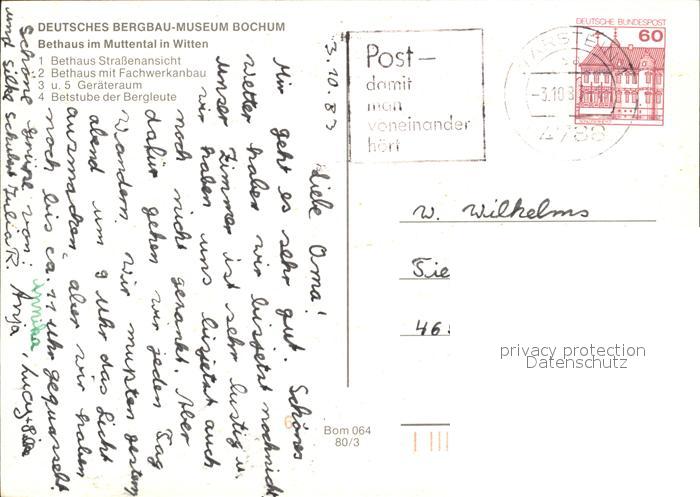 DEUTSCHES BERGBAU-MUSEUM BOCHUM
Bethaus im Muttental in Witten
1 Bethaus Straßenansicht
2 Bethaus mit Fachwerkanbau
3 u. 5 Geräteraum
4 Betstube der Bergleute
3.10.83
Liebe Oma!
Mir geht es sehr gut. Schönes
Wetter haben wir bisjetzt noch nicht
unser Zimmer ist sehr lustig u.
wir haben uns bisjetzt auch
noch nicht gezankt. Aber
dafür gehen wir jeden Tag
Wandern. Wir mußten gestern
abend um 9 Uhr das Licht
ausmachen, aber wir haben
noch bis ca. 11 Uhr gequatscht.
Schöne Grüße von: Annika, Lucy
und Silke Schulz Julia R. Anja
Post–
damit
man
voneinander
hört
DEUTSCHE BUNDESPOST
60
WARSTEIN
-3.10.8
4788
W. Wilhelms
Sie
46
privacy protection
Datenschutz
Bom 064
80/3